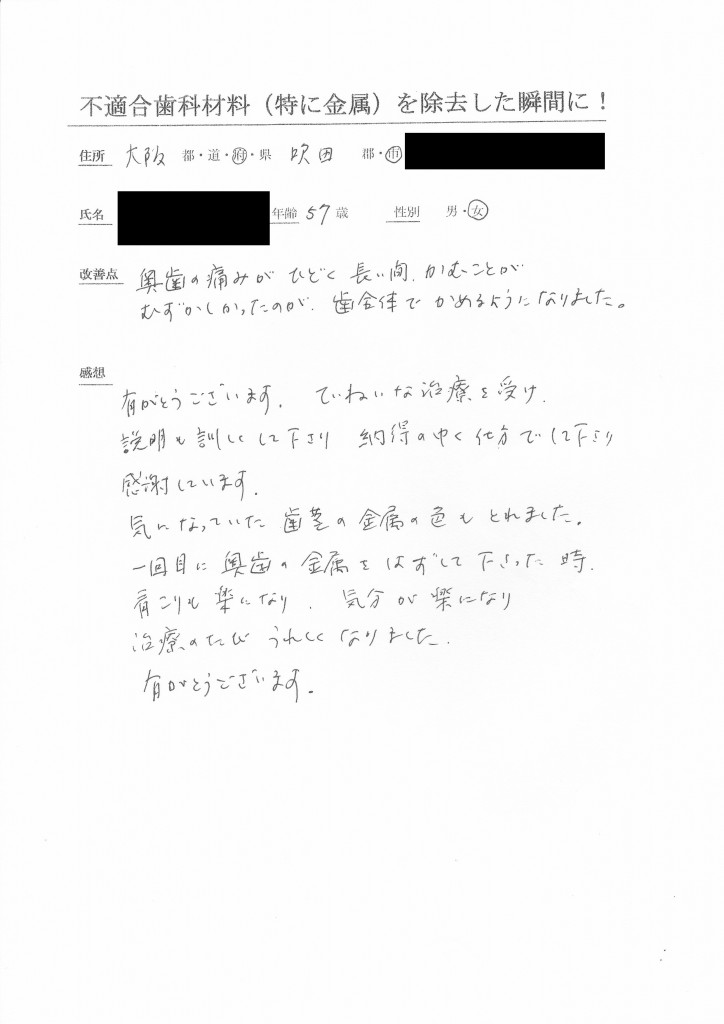 不適合歯科材料（特に金属）を除去した瞬間に！
住所 大阪 都・道・府・県 吹田 郡・市
氏名 年齢 57 歳 性別 男・女
改善点 奥歯の痛みが ひどく 長い間、かむことが
むずかしかったのが、歯全体で かめるようになりました。
感想
有がとうございます。 ていねいな治療を受け、
説明も訓しくして下さり 納得のゆく仕方でして下さり
感謝しています。
気になっていた 歯茎の金属の色も とれました。
一回目に 奥歯の金属を はずして 下さった 時、
肩こりも 楽になり、 気分が 楽になり
治療のたび うれしくなりました。
有がとうございます。